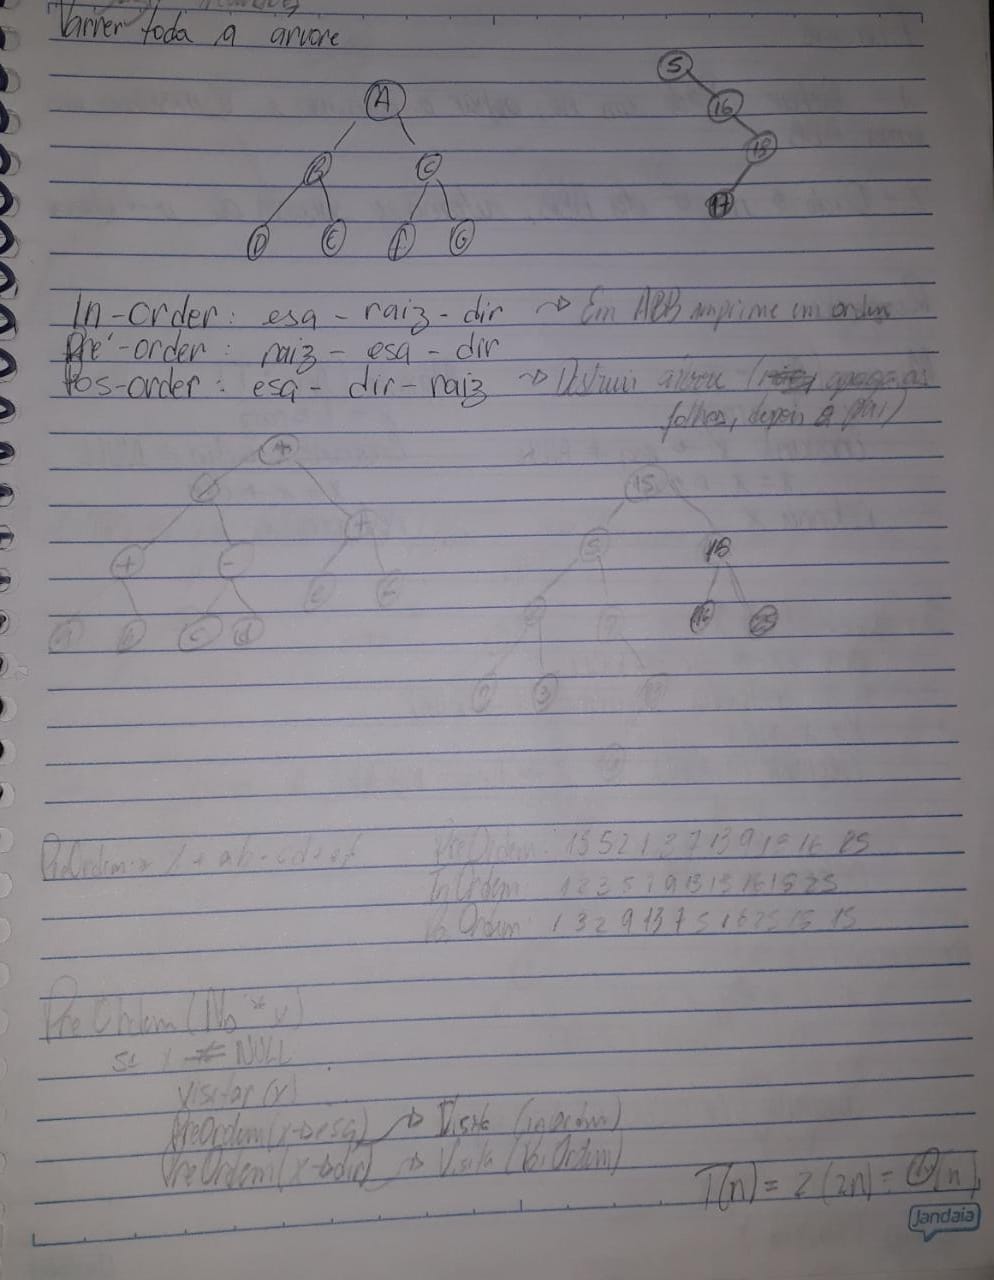 Varrer toda a arvore
A
B C
D E F G
5
16
18
17
In-order: esq - raiz - dir -> Em ABB imprime em ordem
Pré-order: raiz - esq - dir
Pos-order: esq - dir - raiz -> Destruir árvore (as
folhas, depois o pai)
+
+ -
c d
15
5 18
2 7 16 25
1 3 13
9
PreOrdem: 15 5 2 1 3 7 13 9 18 16 25
InOrdem 1 2 3 5 7 9 13 15 16 18 25
Pos Ordem 1 3 2 9 13 7 5 16 25 18 15
Pre Ordem (No * x)
se x ≠ NULL
visitar (x)
PreOrdem(x->esq) -> Visita (inordem)
PreOrdem(x->dir) -> Visita (PosOrdem)
T(n) = 2(2n) = Θ(n)
Jandaia